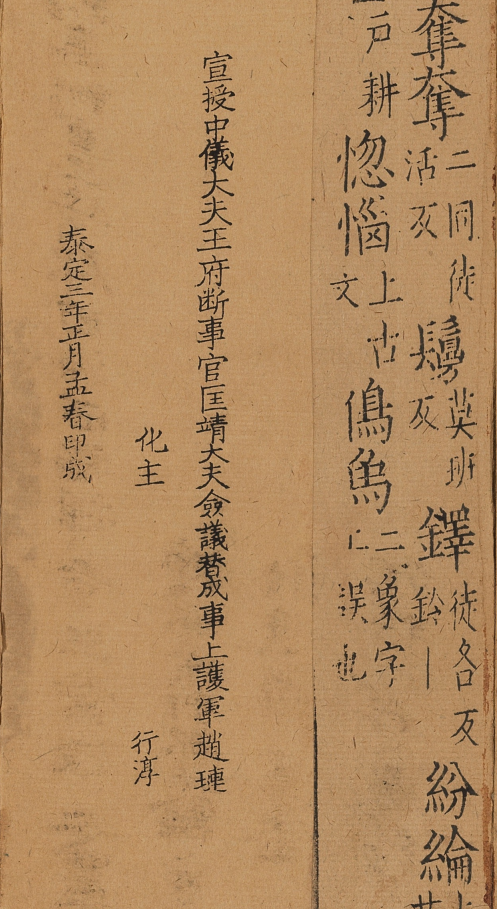 奪奪二同徒活反鬘莫班反鐸徒各反鈴丨紛綸
戶耕惚惱上古文二象字誤也
宣授中儀大夫王府断事官匡靖大夫僉議替成事上護軍趙璉
化主 行淳
泰定三年正月孟春印成